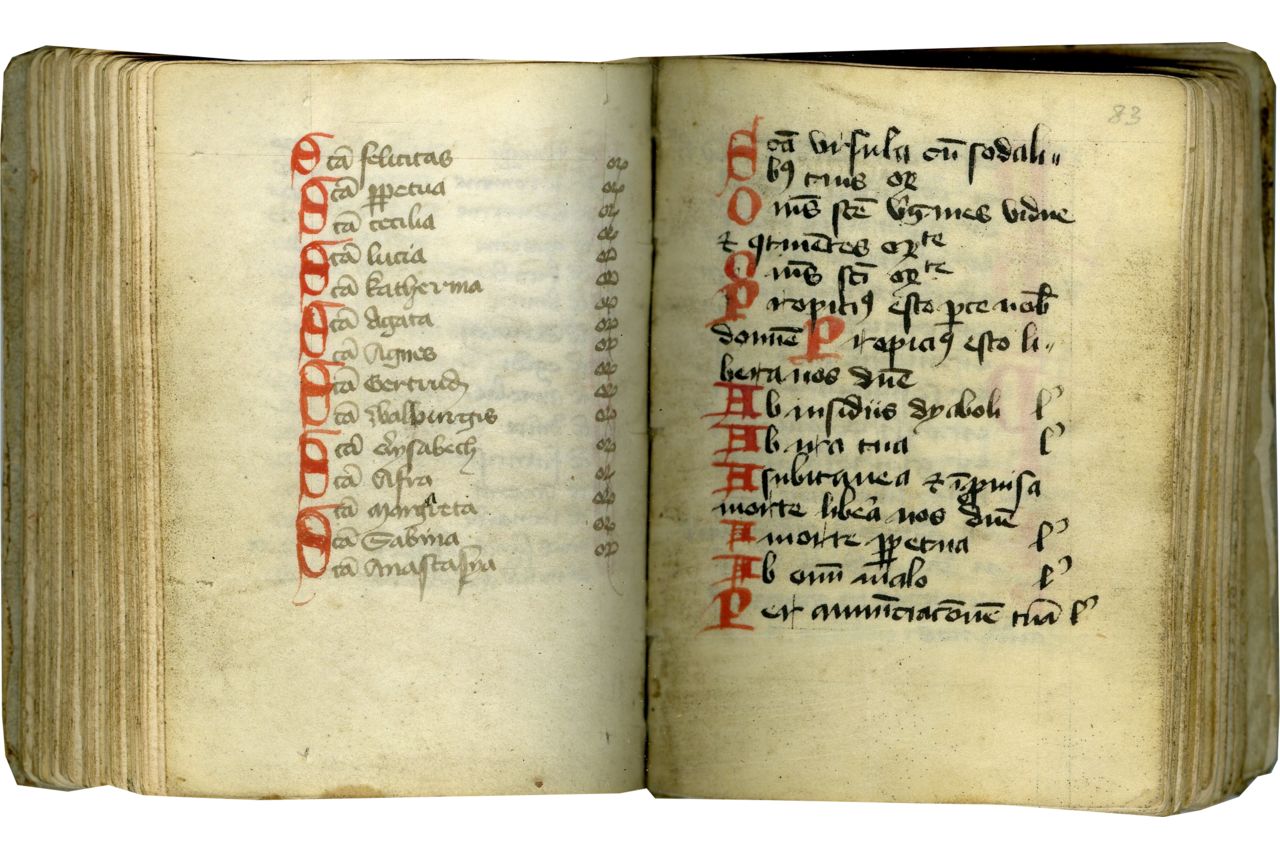 Scā felicitas or
Scā ꝑpetua or
Scā cecilia or
Scā lucia or
Scā katherina or
Scā Agata or
Scā Agnes or
Scā Gertrud or
Scā walpurgis or
Scā elysabech or
Scā Afra or
Scā Margareta or
Scā Sabina or
Scā Anastasya
83
Scā vrsula cū sodali〃
bꝰ tuis or
Om̄s scē v̓gines vidue
⁊ ꝯtinētes orte
Om̄s scī orte
Propiciꝰ esto ꝑce nob̄
domine Propiciꝰ esto li〃
bera nos dn̄e
Ab insidiis dyaboli l'
Ab ira tua l'
A subitanea ⁊ īprouisa
morte libera nos dn̄e
A morte ꝑpetua l'
Ab om̄i malo l'
Per annūciacōnē tuā l'